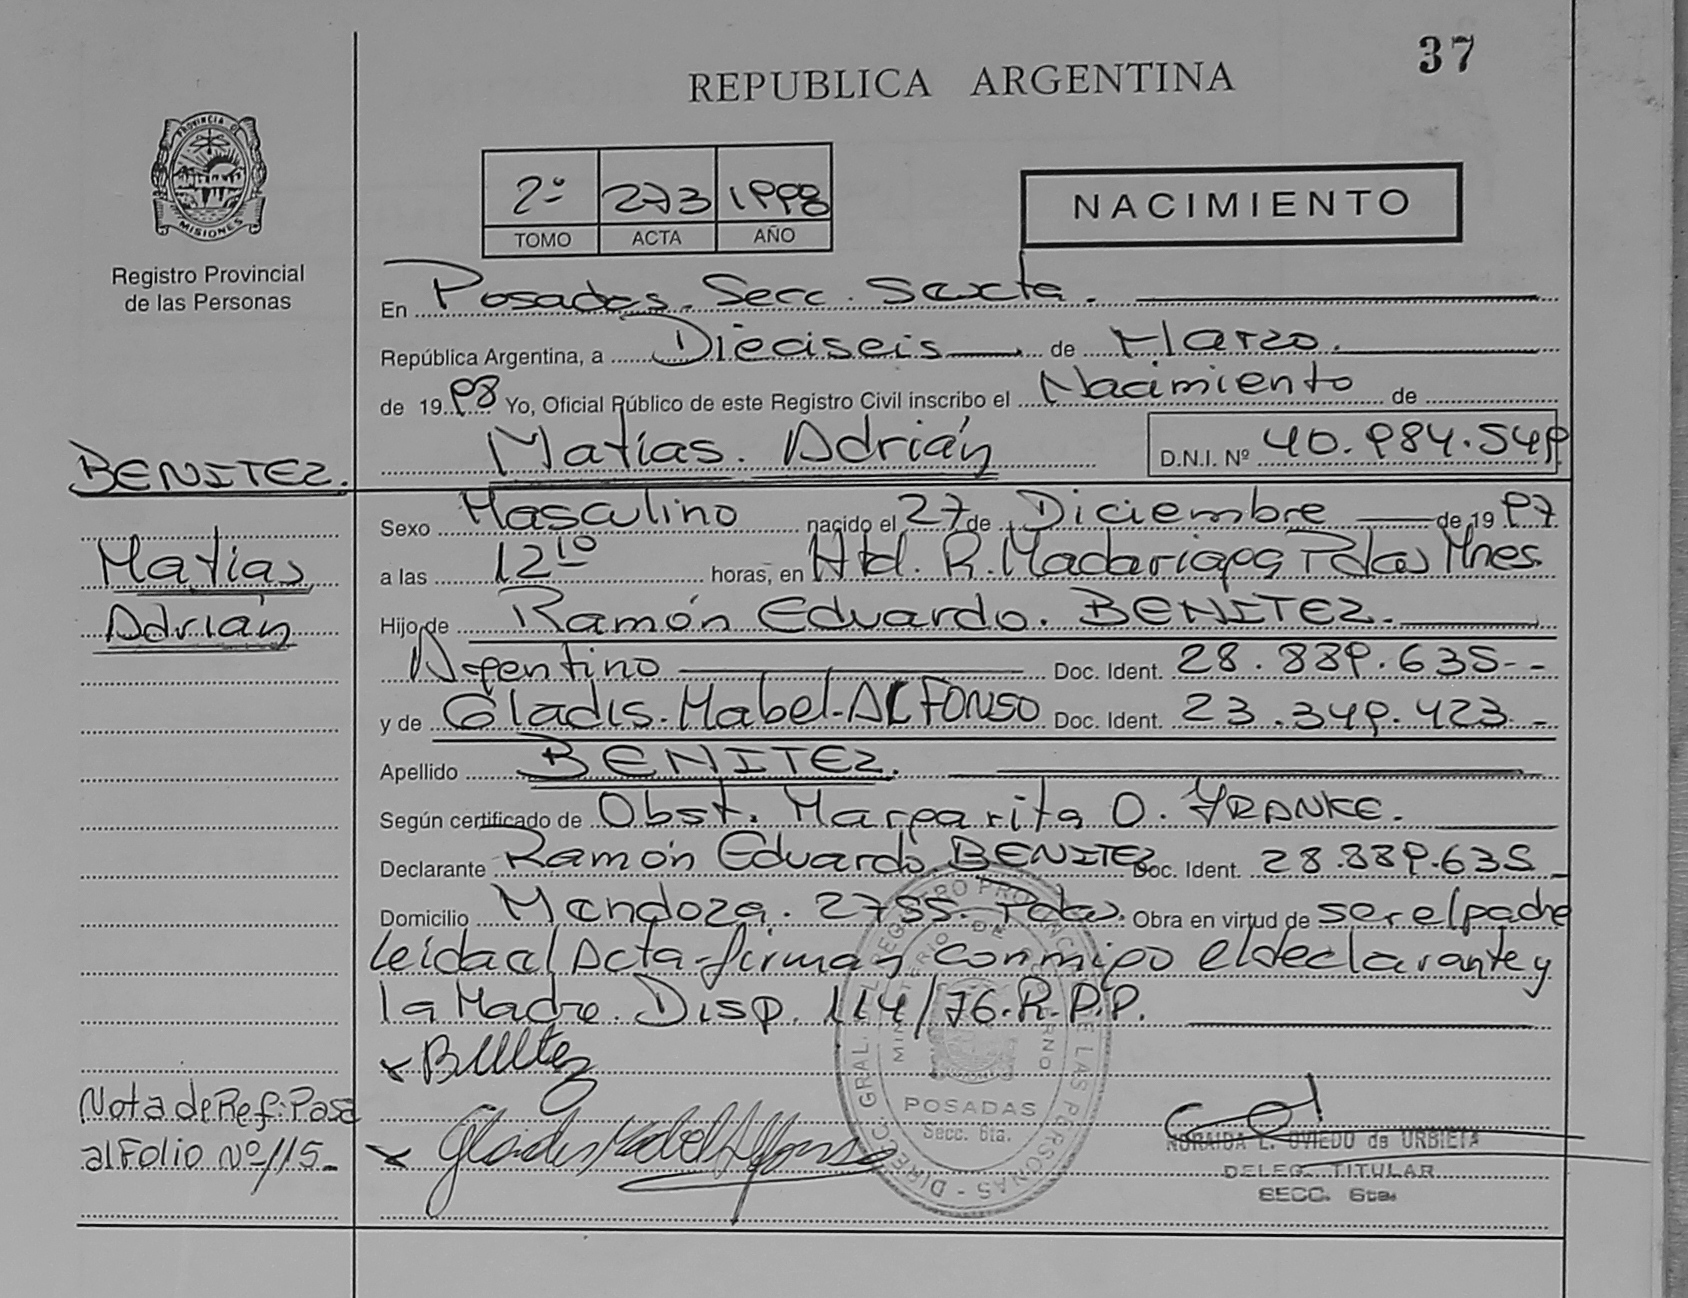 37
REPUBLICA ARGENTINA
PROVINCIA D
MISIONES
Registro Provincial
de las Personas
2º 273 1998
TOMO ACTA AÑO
NACIMIENTO
En Posadas. Secc. Sexta.
República Argentina, a Dieciseis de Marzo.
de 1998 Yo, Oficial Público de este Registro Civil inscribo el Nacimiento de
Matías. Adrián D.N.I. Nº 40.984.549
BENITEZ.
Matías
Adrián
Sexo Masculino nacido el 27 de Diciembre de 1997
a las 12 10 horas, en Htal. R. Madariaga Pdas Mnes
Hijo de Ramón Eduardo. BENITEZ.
Argentino Doc. Ident. 28.889.635--
y de Gladis. Mabel. ALFONSO Doc. Ident. 23.349.423-
Apellido BENITEZ.
Según certificado de Obst. Margarita O. FRANKE.
Declarante Ramón Eduardo. BENITEZ Doc. Ident. 28.889.635
Domicilio Mendoza. 2755. Pdas. Obra en virtud de ser el padre
leida el Acta firman conmigo el declarante y
la Madre. Disp. 114/76. R.P.P.
x Benitez
x Gladis Mabel Alfonso
Nota de Ref: Pasa
al Folio Nº 115-
DIRECC. GRAL. REGISTRO PROVINCIAL DE LAS PERSONAS
MINISTERIO DE GOBIERNO
POSADAS
Secc. 6ta.
NORAIDA L. OVIEDO de URBIETA
DELEG. TITULAR
SECC. 6ta.